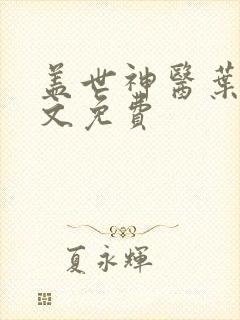 盖世神醫葉
文免費
夏永輝